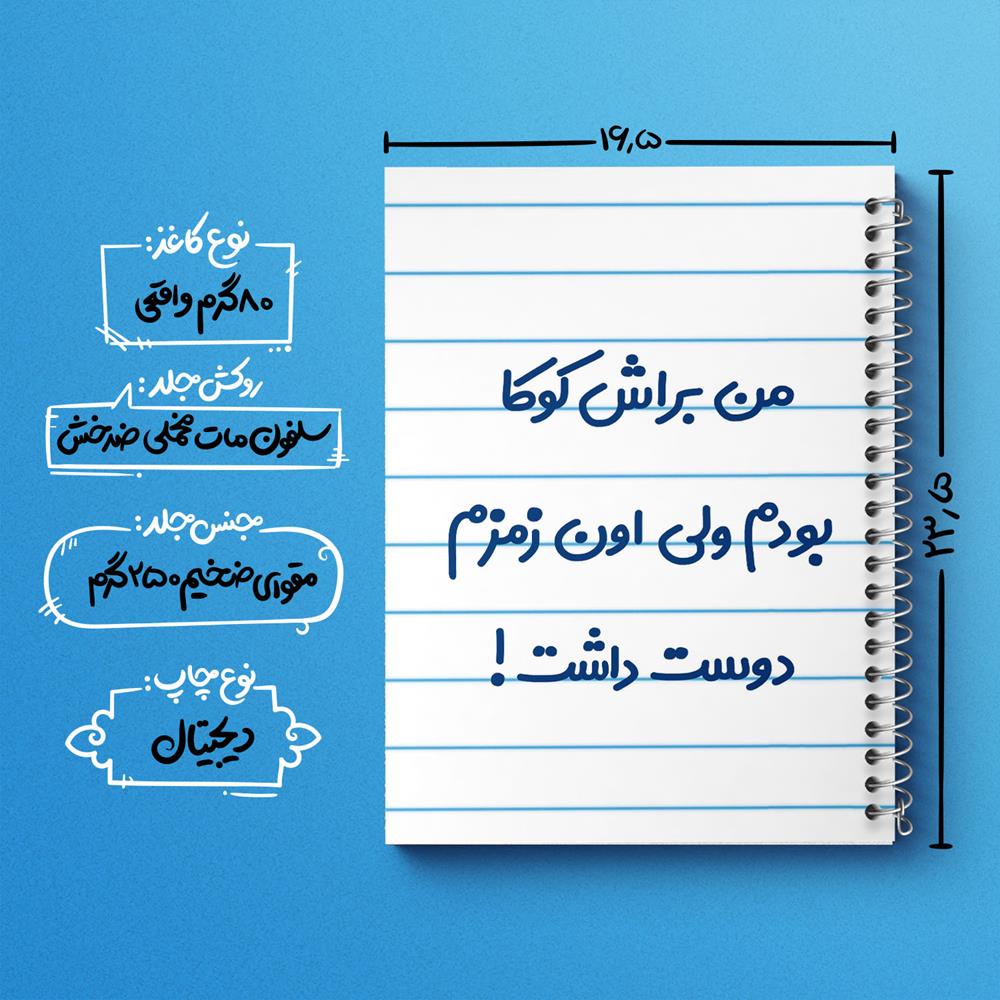 ۱۶٫۵
۲۳٫۵
من براش کوکا
بودم ولی اون زمزم
دوست داشت !
نوع کاغذ:
۸۰گرم واقعی
روکش جلد:
سلفون مات مخملی ضدخش
جنس جلد:
مقوای ضخیم ۲۵۰ گرم
نوع چاپ:
دیجیتال